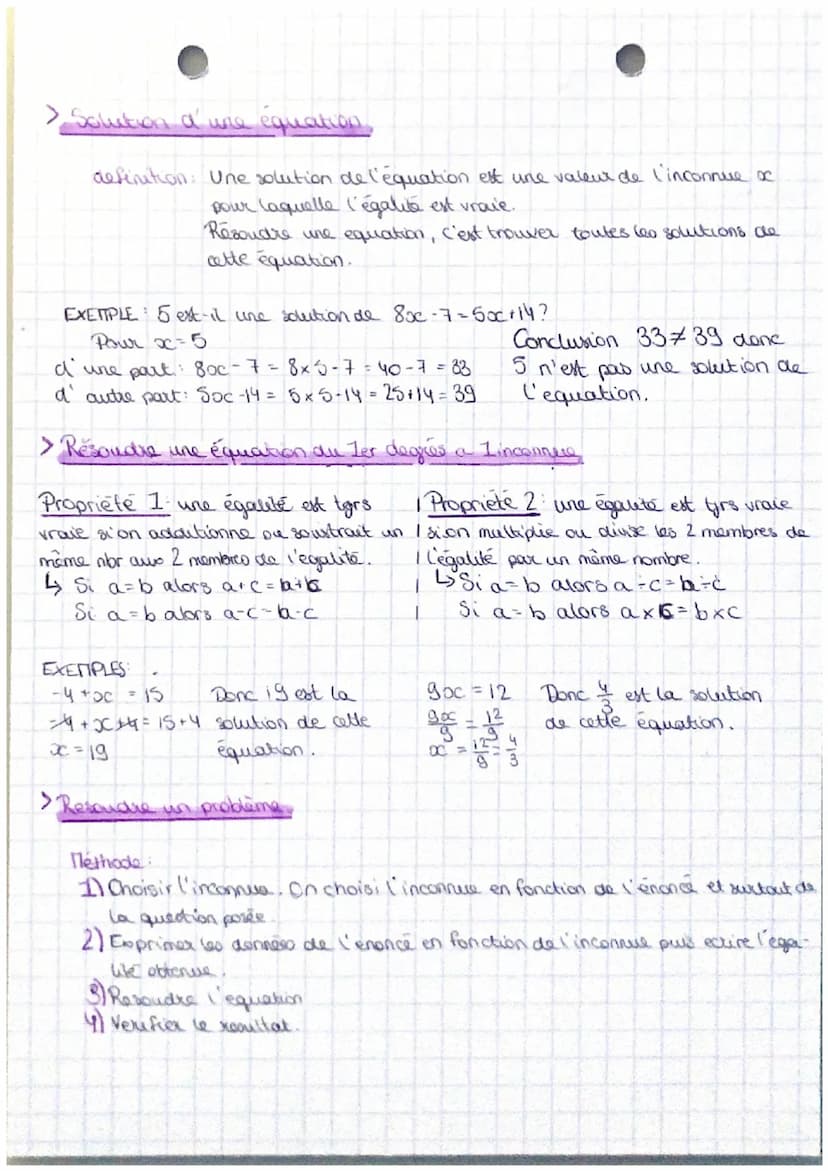 > Solution d'une équation
definition: Une solution de l'équation est une valeur de l'inconnue x
pour laquelle l'égalité est vraie.
Résoudre une equation, c'est trouver toutes les solutions de
cette équation.
EXEMPLE : 5 est-il une solution de 8x - 7 = 5x + 14 ?
Pour x = 5
d'une part : 8x - 7 = 8 x 5 - 7 = 40 - 7 = 33
d'autre part : 5x - 14 = 5 x 5 - 14 = 25 + 14 = 39
Conclusion 33 ≠ 39 donc
5 n'est pas une solution de
l'equation.
> Résoudre une équation du 1er degrés a 1 inconnue
Propriété 1 : une égalité est tjrs
vraie si on additionne ou soustrait un
même nbr aux 2 membres de l'egalité.
↳ Si a = b alors a + c = b + c
Si a = b alors a - c = b - c
Propriété 2 : une égalité est tjrs vraie
si on multiplie ou divise les 2 membres de
l'égalité par un même nombre.
↳ Si a = b alors a ÷ c = b ÷ c
Si a = b alors a x c = b x c
EXEMPLES :
-4 + x = 15
-4 + x + 4 = 15 + 4
x = 19
Donc 19 est la
solution de cette
équation.
9x = 12
9x/9 = 12/9
x = 12/9 = 4/3
Donc 4/3 est la solution
de cette équation.
> Resoudre un problème
Méthode :
1) Choisir l'inconnue. On choisi l'inconnue en fonction de l'énoncé et surtout de
la question posée
2) Exprimer les données de l'enoncé en fonction de l'inconnue puis ecrire l'éga-
lité obtenue.
3) Resoudre l'equation
4) Verifier le resultat.